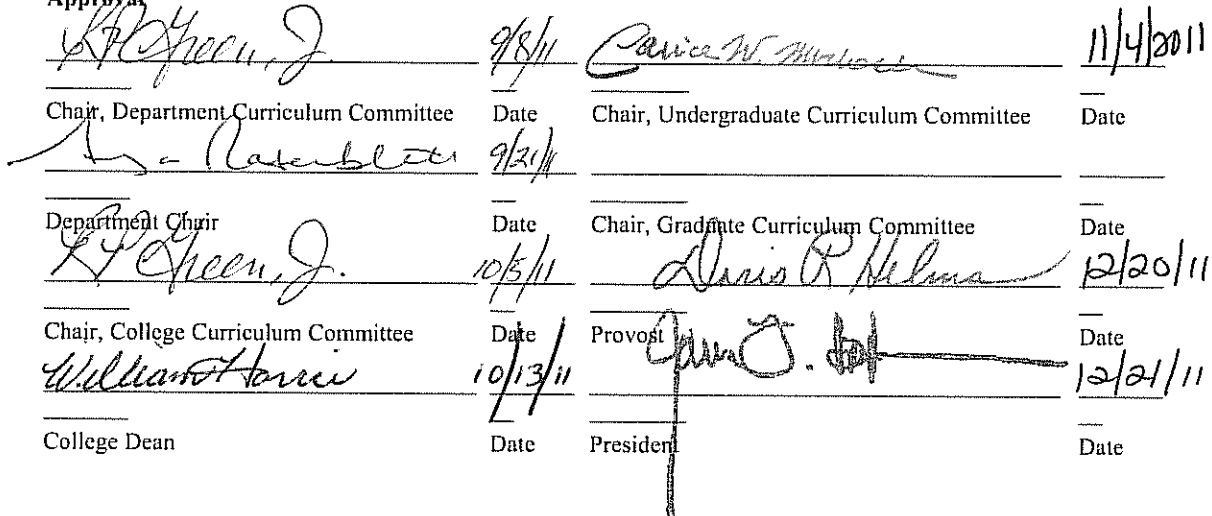 Approval
Green, J. 9/8/11 W. 11/4/2011
Chair, Department Curriculum Committee Date Chair, Undergraduate Curriculum Committee Date
9/21/11
Department Chair Date Chair, Graduate Curriculum Committee Date
Green, J. 10/5/11 Doris R Helms 12/20/11
Chair, College Curriculum Committee Date Provost Date
William Harris 10/13/11 12/21/11
College Dean Date President Date